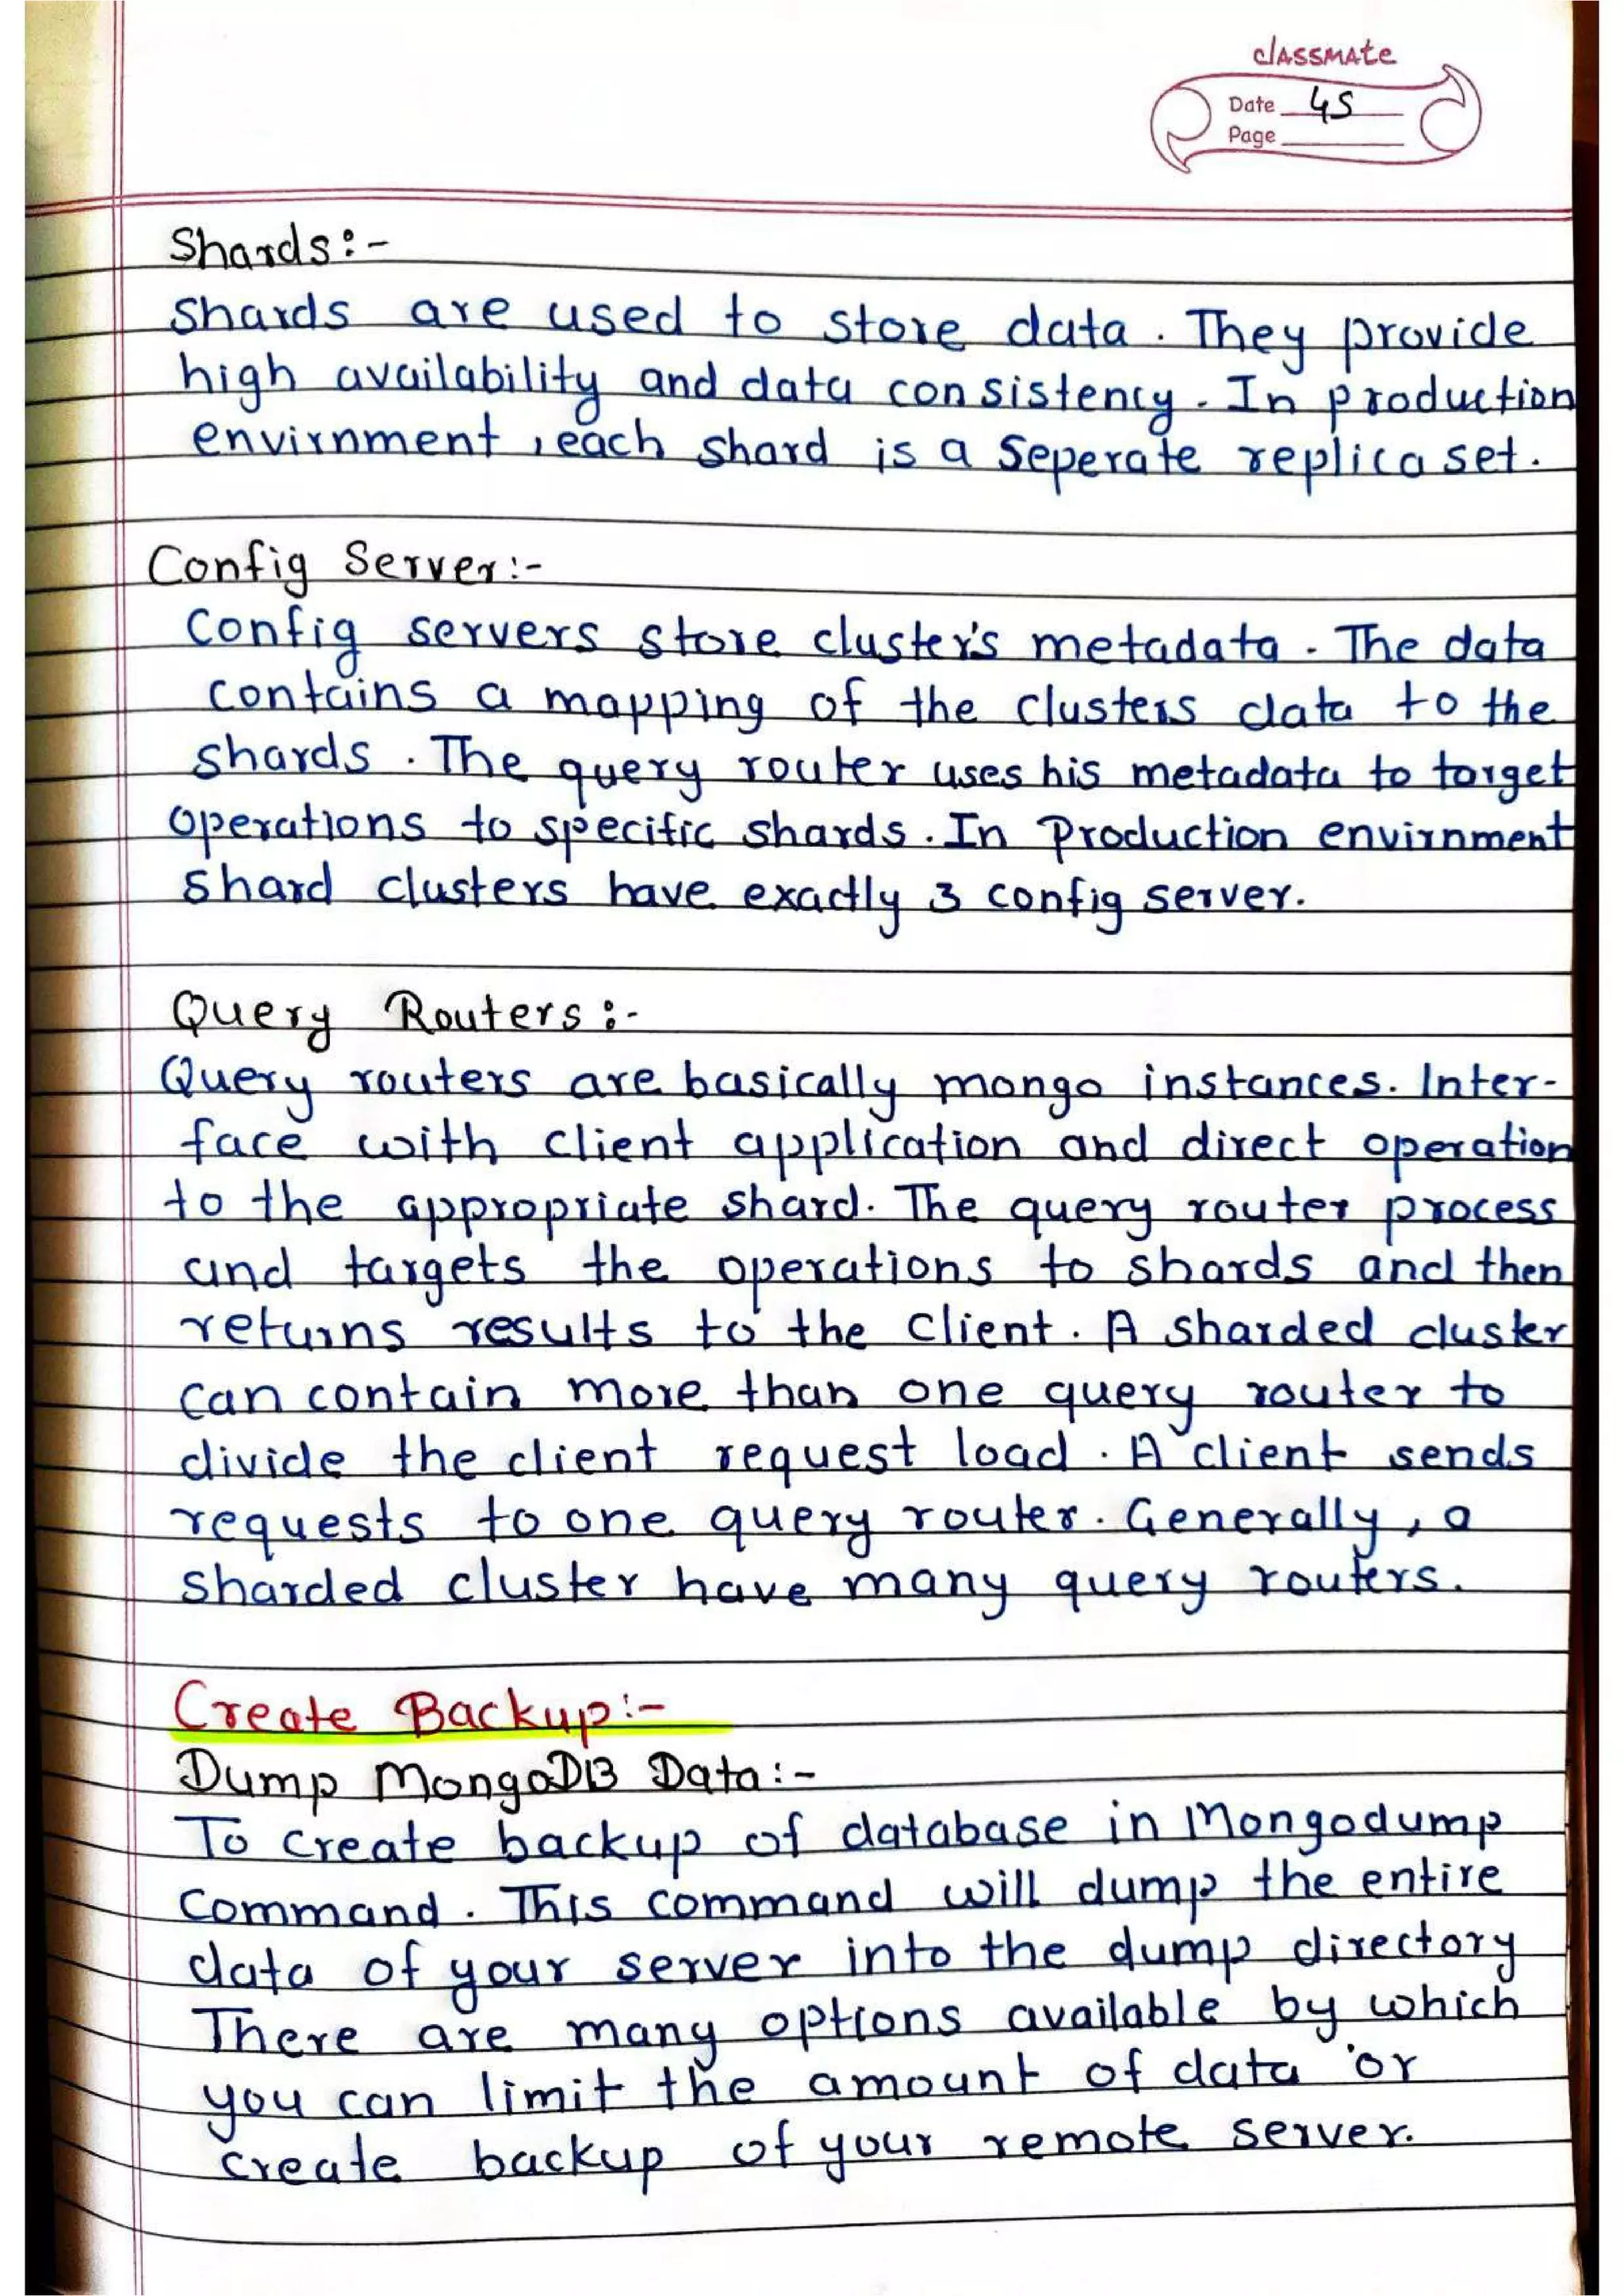 classmate
Date 45
Page
Shards:-
Shards are used to store data. They provide
high availability and data consistency. In production
envirnment, each shard is a seperate replica set.
Config Server:-
Config servers store cluster's metadata. The data
contains a mapping of the clusters data to the
shards. The query router uses his metadata to target
operations to specific shards. In Production envirnment
shard clusters have exactly 3 config server.
Query Routers:-
Query routers are basically mongo instances. Inter-
face with client application and direct operation
to the appropriate shard. The query router process
and targets the operations to shards and then
returns results to the client. A sharded cluster
can contain more than one query router to
divide the client request load. A client sends
requests to one query router. Generally, a
sharded cluster have many query routers.
Create Backup:-
Dump MongoDB Data:-
To create backup of database in Mongodump
command. This command will dump the entire
data of your server into the dump directory
There are many options available by which
you can limit the amount of data or
create backup of your remote server.